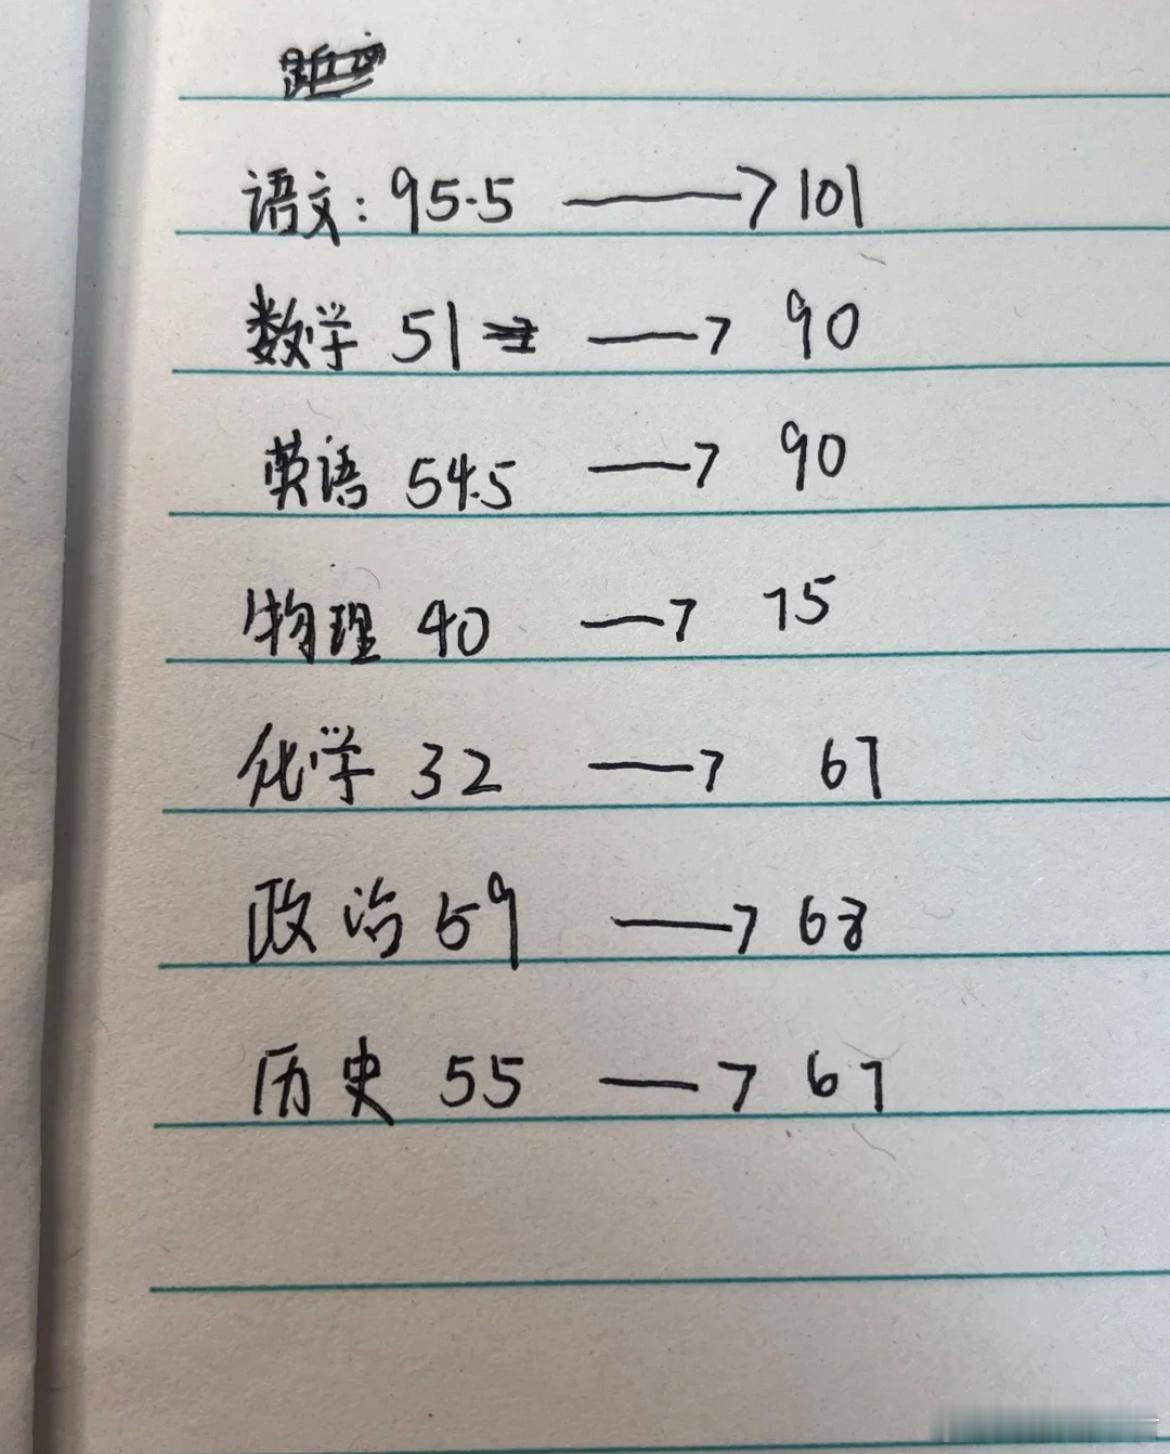 语文: 95.5 ——→ 101
数学 51 —→ 90
英语 54.5 —→ 90
物理 40 —→ 75
化学 32 —→ 67
政治 59 —→ 68
历史 55 —→ 67